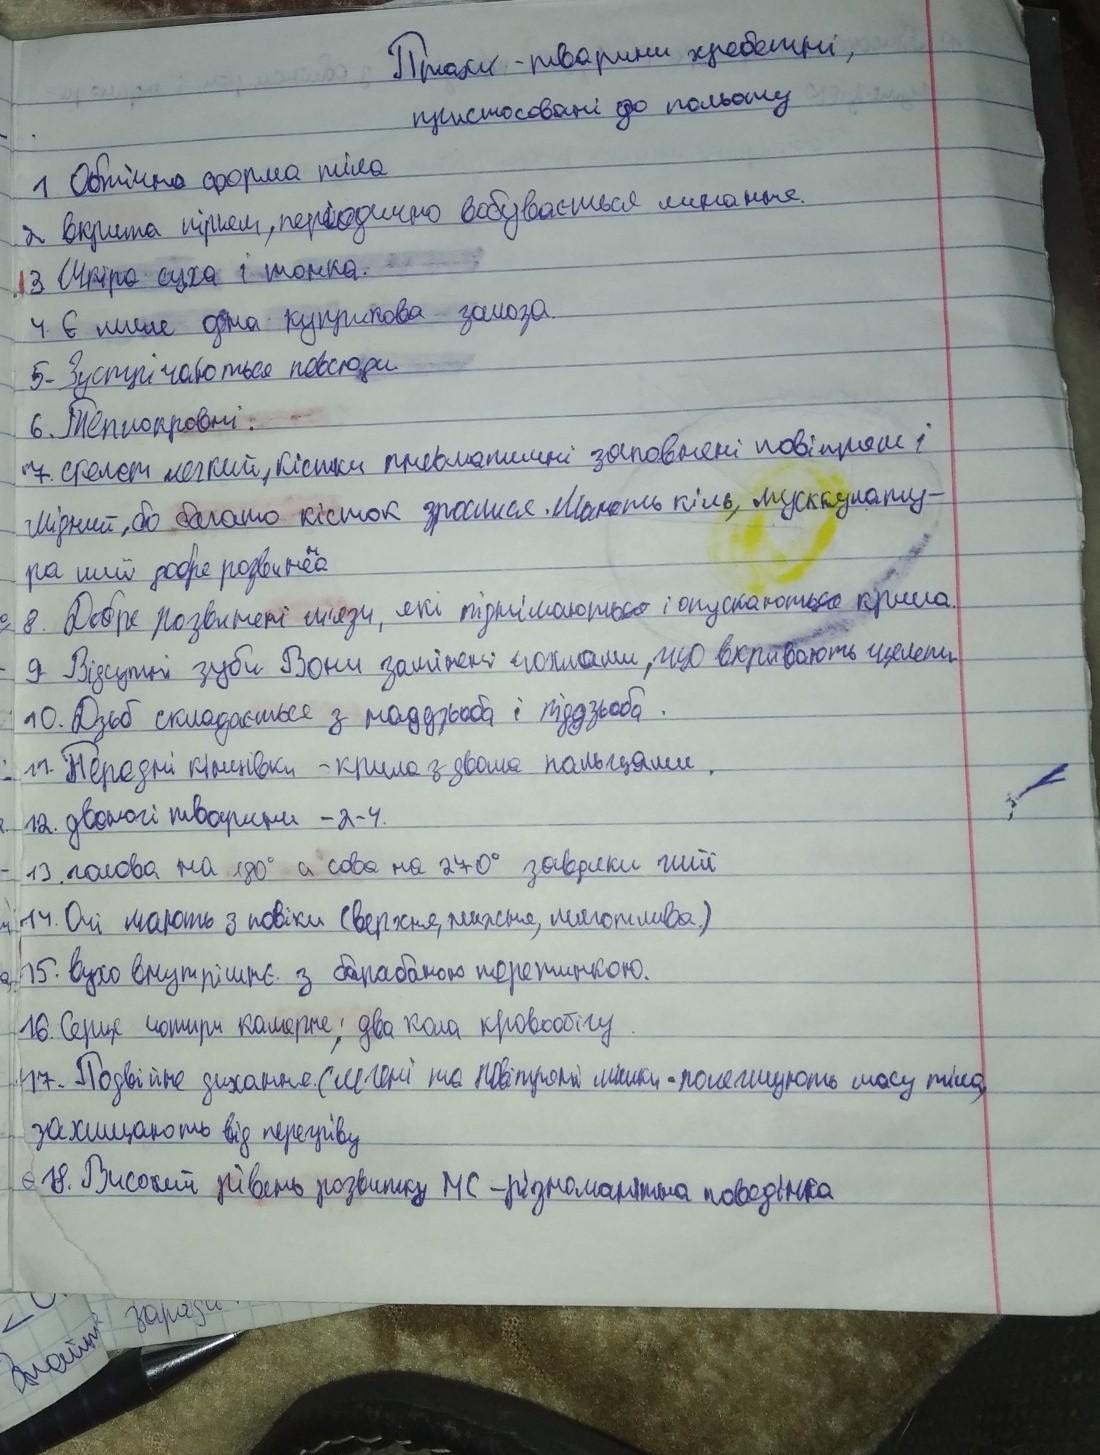 Птахи - тварини хребетні,
пристосовані до польоту
1 Обтічна форма тіла
2 вкрита пірям, періодично вобувається линання.
13 Шкіра суха і тонка.
4. Є лише одна куприкова залоза
5- Зустрічаються повсюди
6. Теплокровні.
7. скелет легкий, кістки пневматичні заповнені повітрям і
міцний, бо багато кісток зрослися. Мають кіль, мусккулату-
ра шиї добре розвинена
8. Добре розвинені мязи, які піднімаються і опускаються крила.
9 Відсутні зуби Вони замінені чохлами, що вкривають щелепи
10. Дзьб складається з наддзьоба і піддзьоба.
11. Передні кінцівки - крила з двома пальцями.
12. двоногі тварини - 2-4.
13. голова на 180° а сова на 270° завдяки шиї
14. Очі мають 3 повіки (верхня, нижня, миготлива.)
15. вухо внутрішнє з барабаною перетинкою.
16. Серце чотири камерне; два кола кровообігу.
17. Подвійне дихання. (легені та повітряні мішки - полегшують масу тіла,
захищають від перегріву
18. Високий рівень розвитку НС - різноманітна поведінка
Знайти зарази